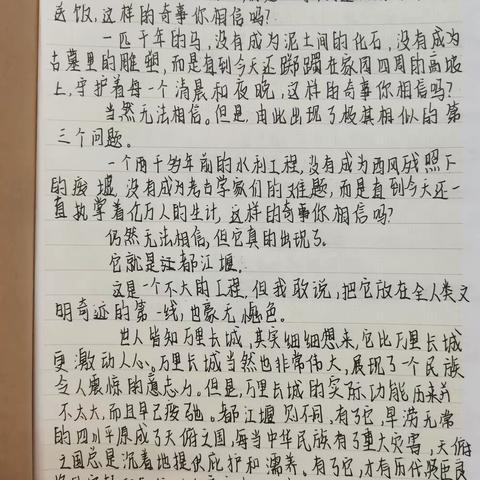 送饭,这样的奇事你相信吗?
一匹千年的马,没有成为泥土间的化石,没有成为
古墓里的雕塑,而是直到今天还踯躅在家园四周的高坡
上,守护着每一个清晨和夜晚,这样的奇事你相信吗?
当然无法相信。但是,由此出现了极其相似的第
三个问题。
一个两千多年前的水利工程,没有成为西风残照下
的废墟,没有成为考古学家们的难题,而是直到今天还一
直执掌着亿万人的生计,这样的奇事你相信吗?
仍然无法相信,但它真的出现了。
它就是都江堰。
这是一个不大的工程,但我敢说,把它放在全人类文
明奇迹的第一线,也毫无愧色。
世人皆知万里长城,其实细细想来,它比万里长城
更激动人心。万里长城当然也非常伟大,展现了一个民族
令人震惊的意志力。但是,万里长城的实际功能历来并
不太大,而且早已废弛。都江堰则不同,有了它,旱涝无常
的四川平原成了天府之国,每当中华民族有了重大灾害,天府
之国总是沉着地提供庇护和濡养。有了它,才有历代贤臣良